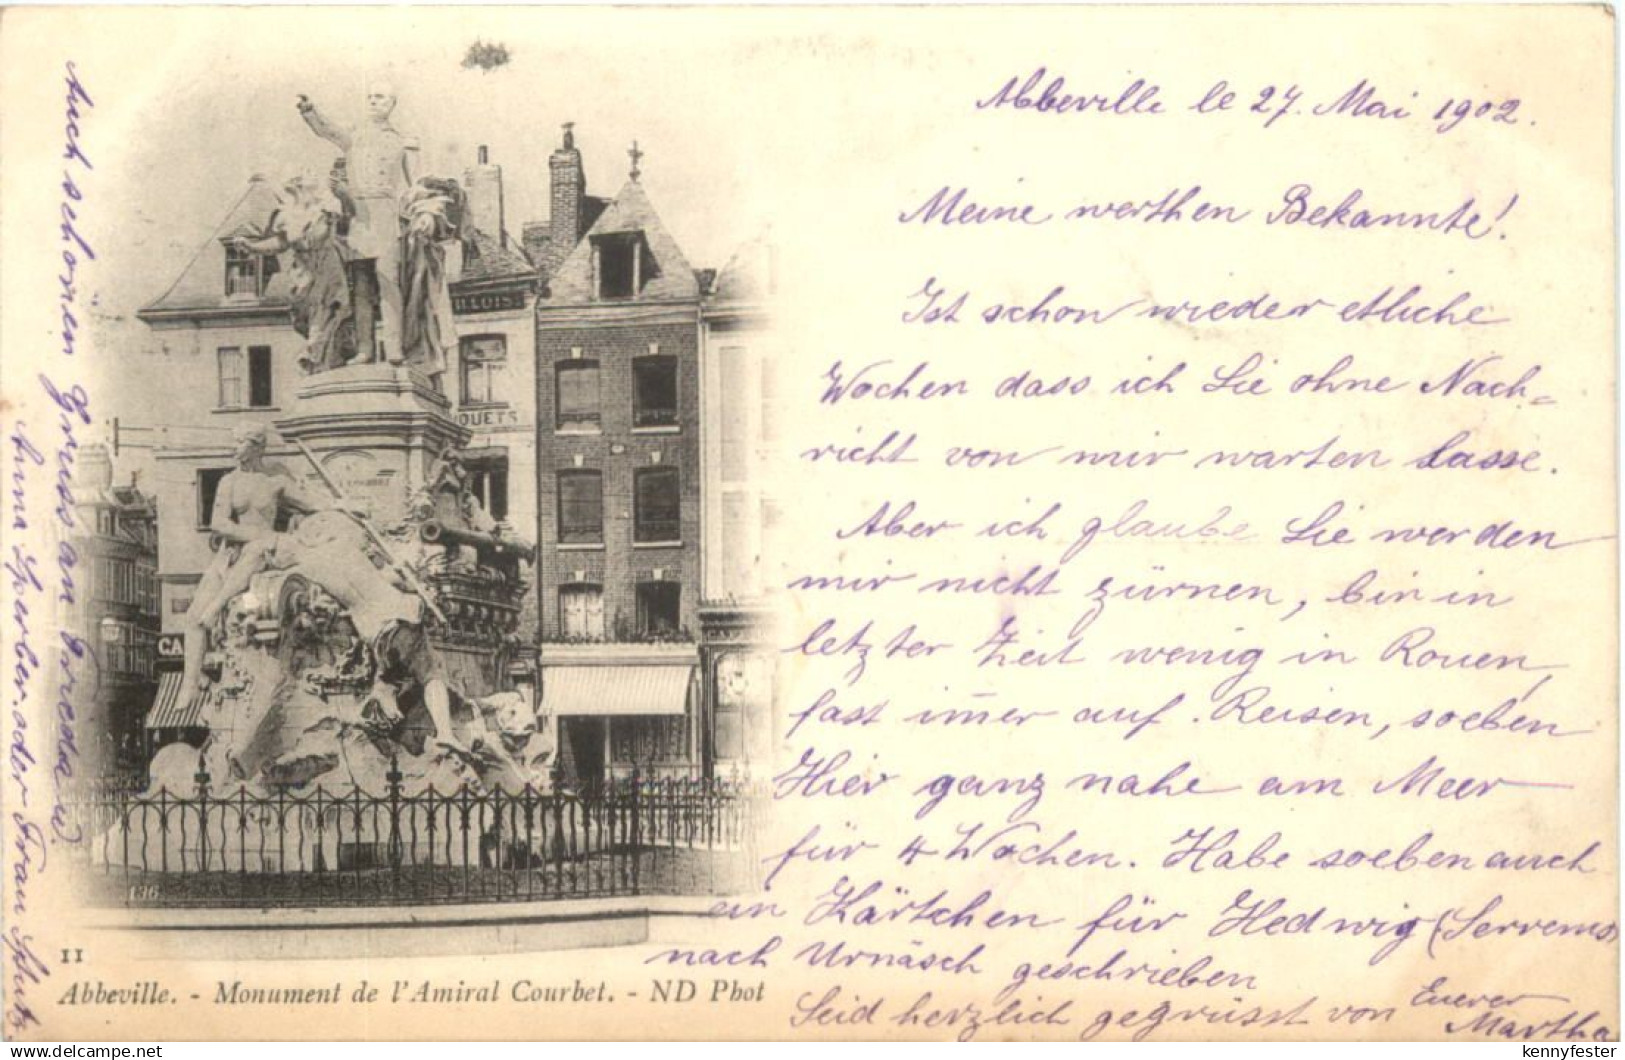 Abbeville le 27. Mai 1902.
Meine werthen Bekannte!
Ist schon wieder etliche
Wochen dass ich Sie ohne Nach=
richt von mir warten lasse.
Aber ich glaube Sie werden
mir nicht zürnen, bin in
letzter Zeit wenig in Rouen,
fast im̄er auf Reisen, soeben
Hier ganz nahe am Meer
für 4 Wochen. Habe soeben auch
ein Kärtchen für Hedwig
nach Urnäsch geschrieben
Seid herzlich gegrüsst von Euerer
Martha
Auch schönen Gruss an Frieda u.
Anna Sperber oder Frau Schutz.
LLOIS
OUETS
CA
136
11
Abbeville. - Monument de l'Amiral Courbet. - ND Phot
kennyfester